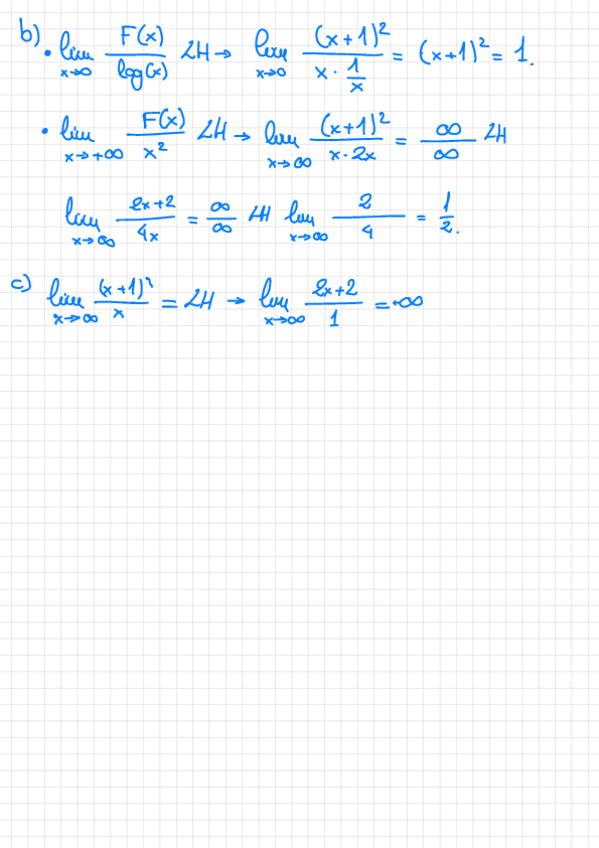 b) • lim x→0 F(x)/log(x) LH → lim x→0 (x+1)²/(x · 1/x) = (x+1)² = 1.
• lim x→+∞ F(x)/x² LH → lim x→∞ (x+1)²/(x·2x) = ∞/∞ LH
lim x→∞ (2x+2)/(4x) = ∞/∞ LH lim x→∞ 2/4 = 1/2.
c) lim x→∞ (x+1)²/x = LH → lim x→∞ (2x+2)/1 = ∞